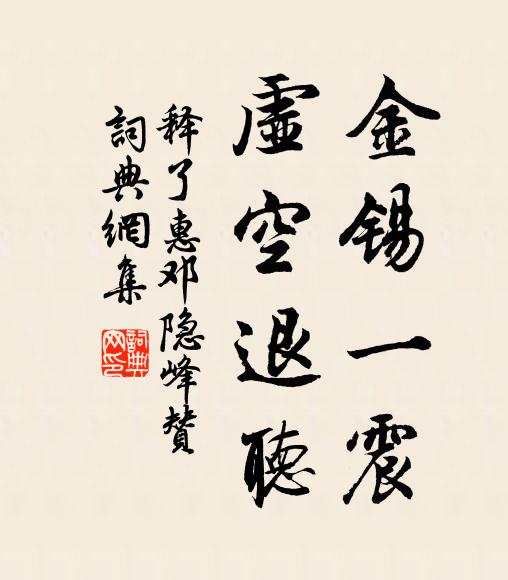 金锡一震
虚空退聽
释了惠邓隐峰赞
詞典網集
詞典
网印